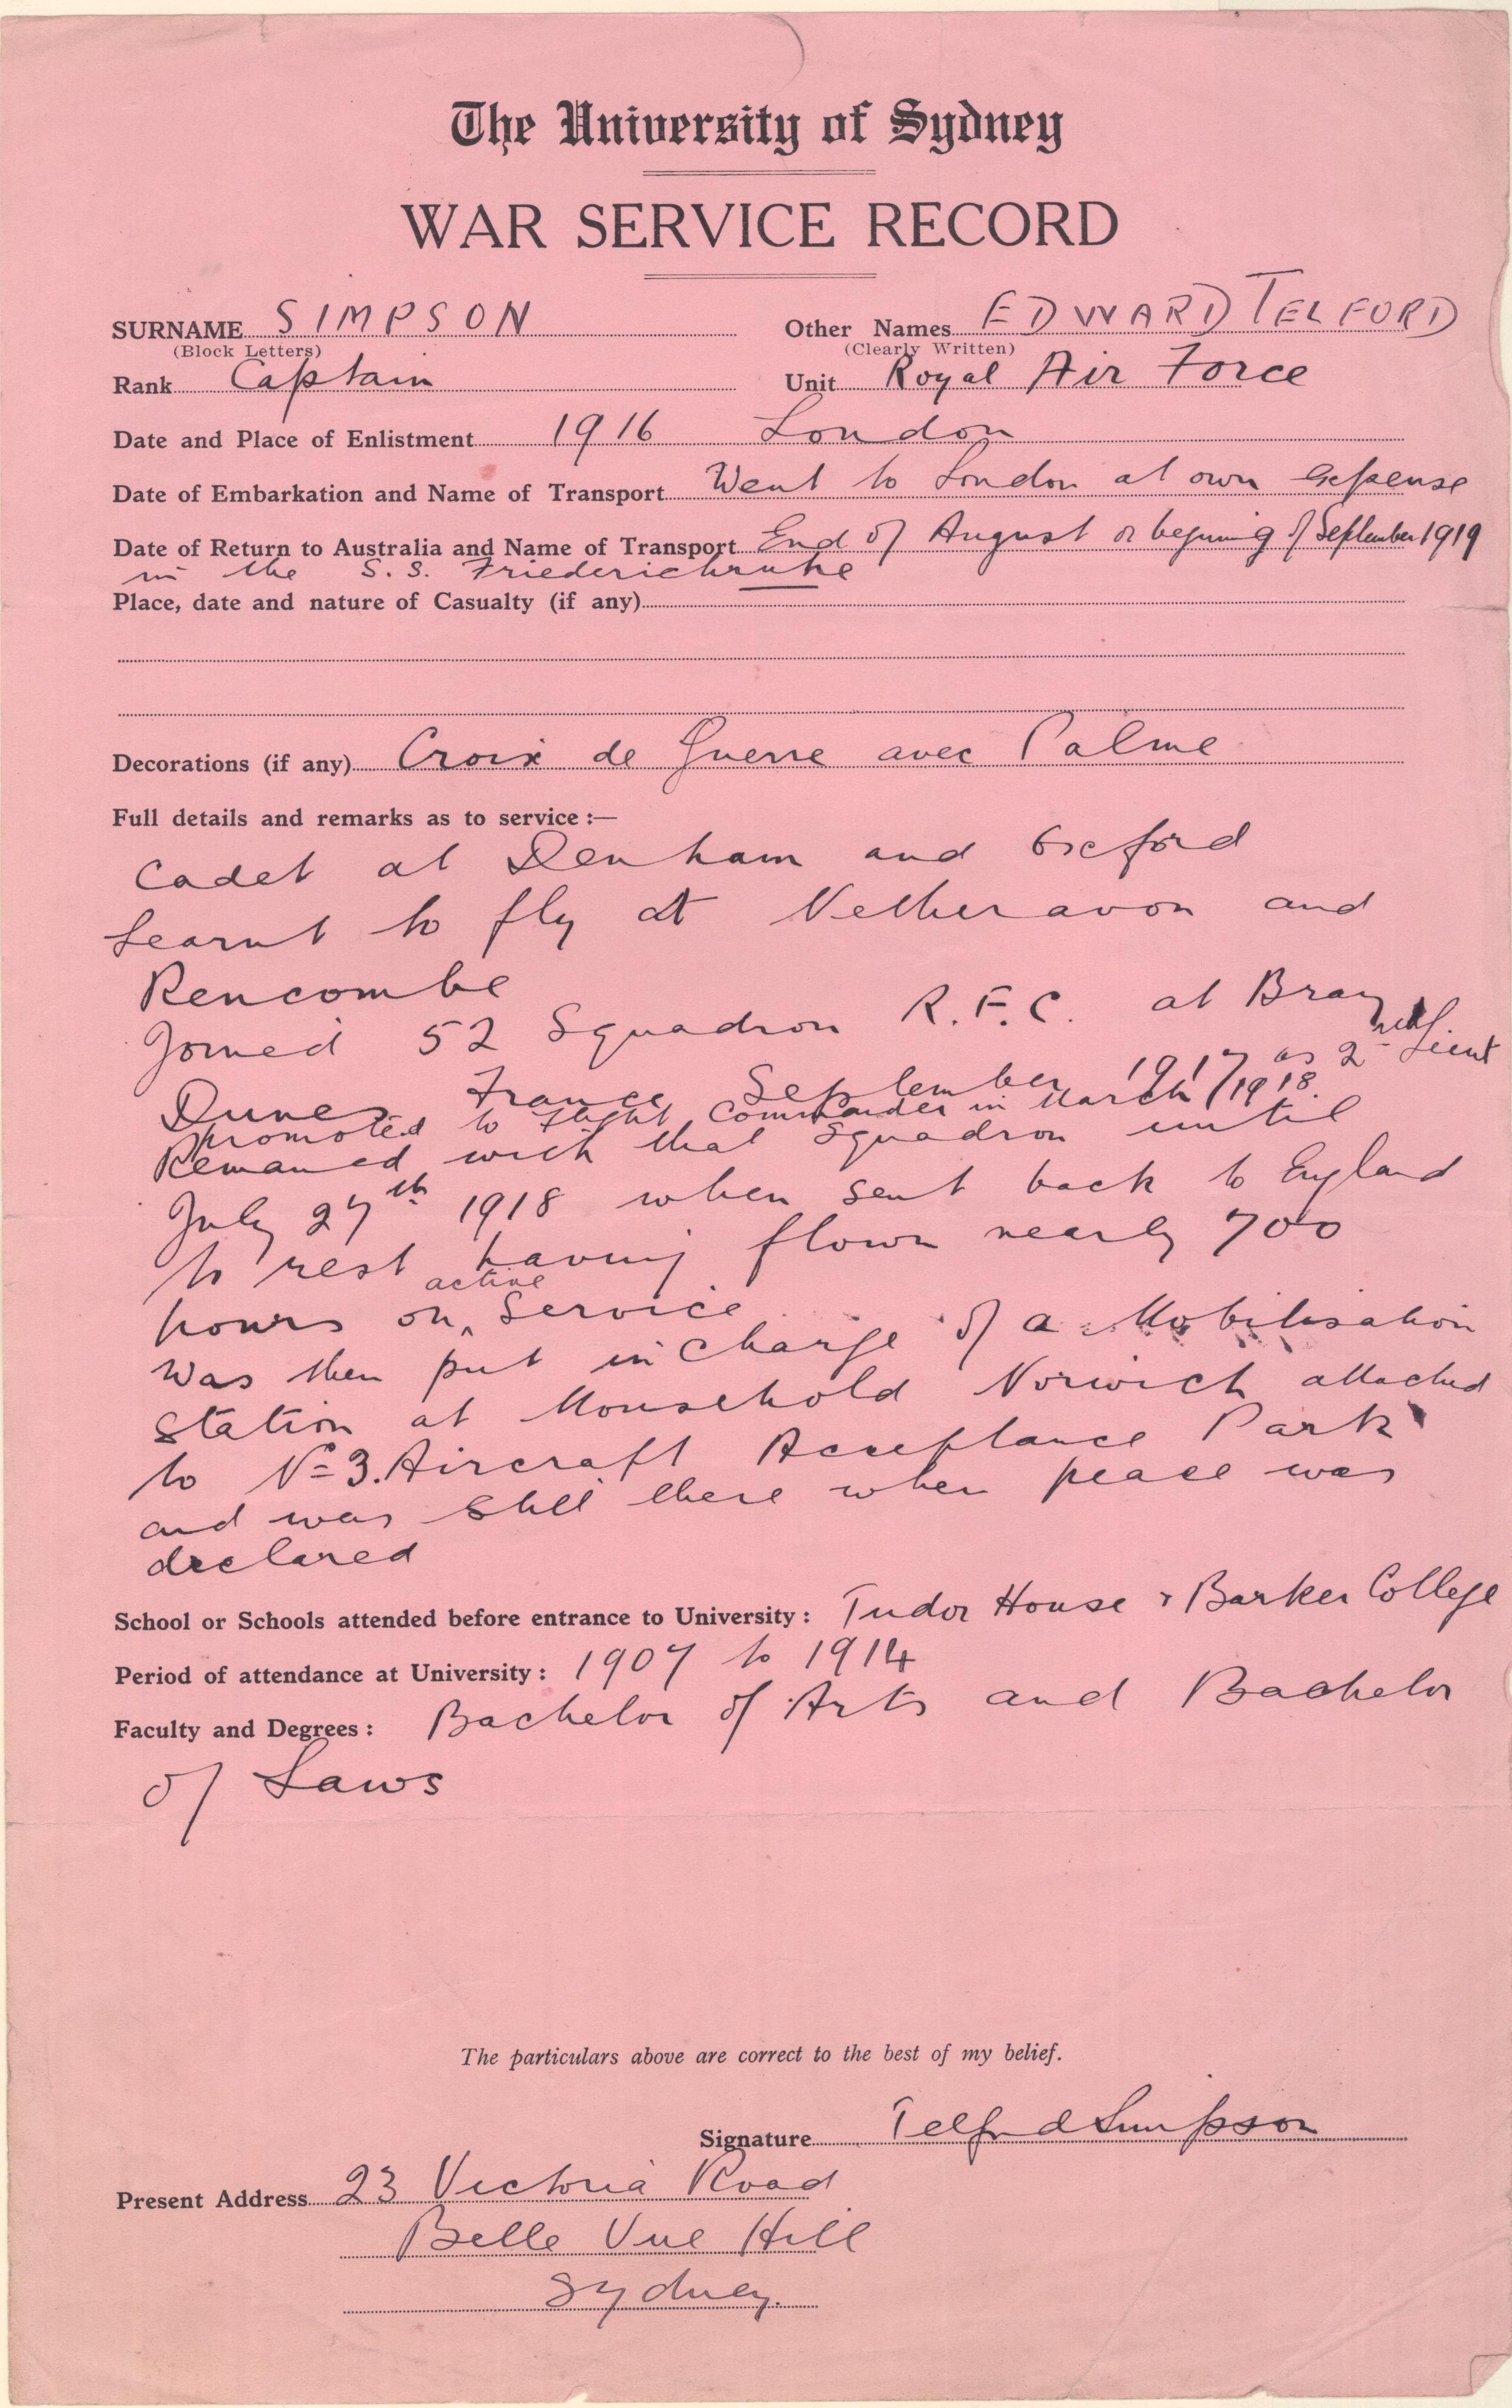 The University of Sydney
WAR SERVICE RECORD
SURNAME SIMPSON Other Names EDWARD TELFORD
(Block Letters) (Clearly Written)
Rank Captain Unit Royal Air Force
Date and Place of Enlistment 1916 London
Date of Embarkation and Name of Transport Went to London at own expense
Date of Return to Australia and Name of Transport End of August or begining of September 1919
in the S.S. Friederichruhe
Place, date and nature of Casualty (if any)
Decorations (if any) Croix de Guerre avec Palme
Full details and remarks as to service :—
Cadet at Denham and Oxford
Learnt to fly at Netheravon and
Rencombe
Joined 52 Squadron R.F.C. at Bray
Dunes France September 1917 as 2nd Lieut
promoted to Flight Commander in March 1918
Remained with that Squadron until
July 27th 1918 when sent back to England
to rest having flown nearly 700
hours on active Service
Was then put in charge of a Mobilisation
Station at Mousehold Norwich attached
to No 3. Aircraft Acceptance Park
and was still there when peace was
declared
School or Schools attended before entrance to University : Tudor House & Barker College
Period of attendance at University : 1907 to 1914
Faculty and Degrees : Bachelor of Arts and Bachelor
of Laws
The particulars above are correct to the best of my belief.
Signature Telford Simpson
Present Address 23 Victoria Road
Belle Vue Hill
Sydney.